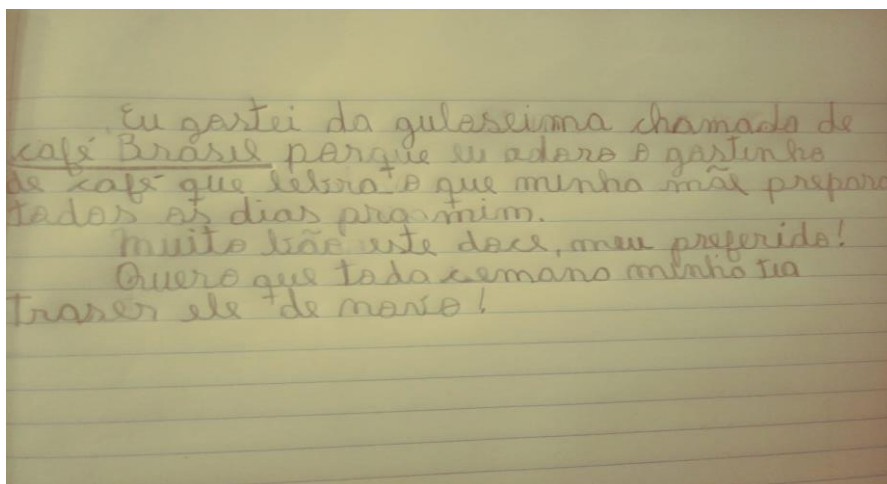 Eu gostei da guloseima chamado de
café Brasil porque eu adoro o gostinho
de café que o que minha mãe prepara
todos os dias pra mim.
Muito bão este doce, meu preferido!
Quero que toda semana minha tia
traser ele de novo!